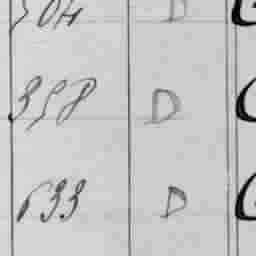 504 D
358 D
633 D